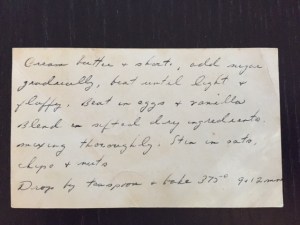 Cream butter + short., add sugar
gradually, beat until light +
fluffy. Beat in eggs + vanilla
Blend in sifted dry ingredients
mixing thoroughly. Stir in oats,
chips + nuts
Drop by teaspoon + bake 375° 9-12 min